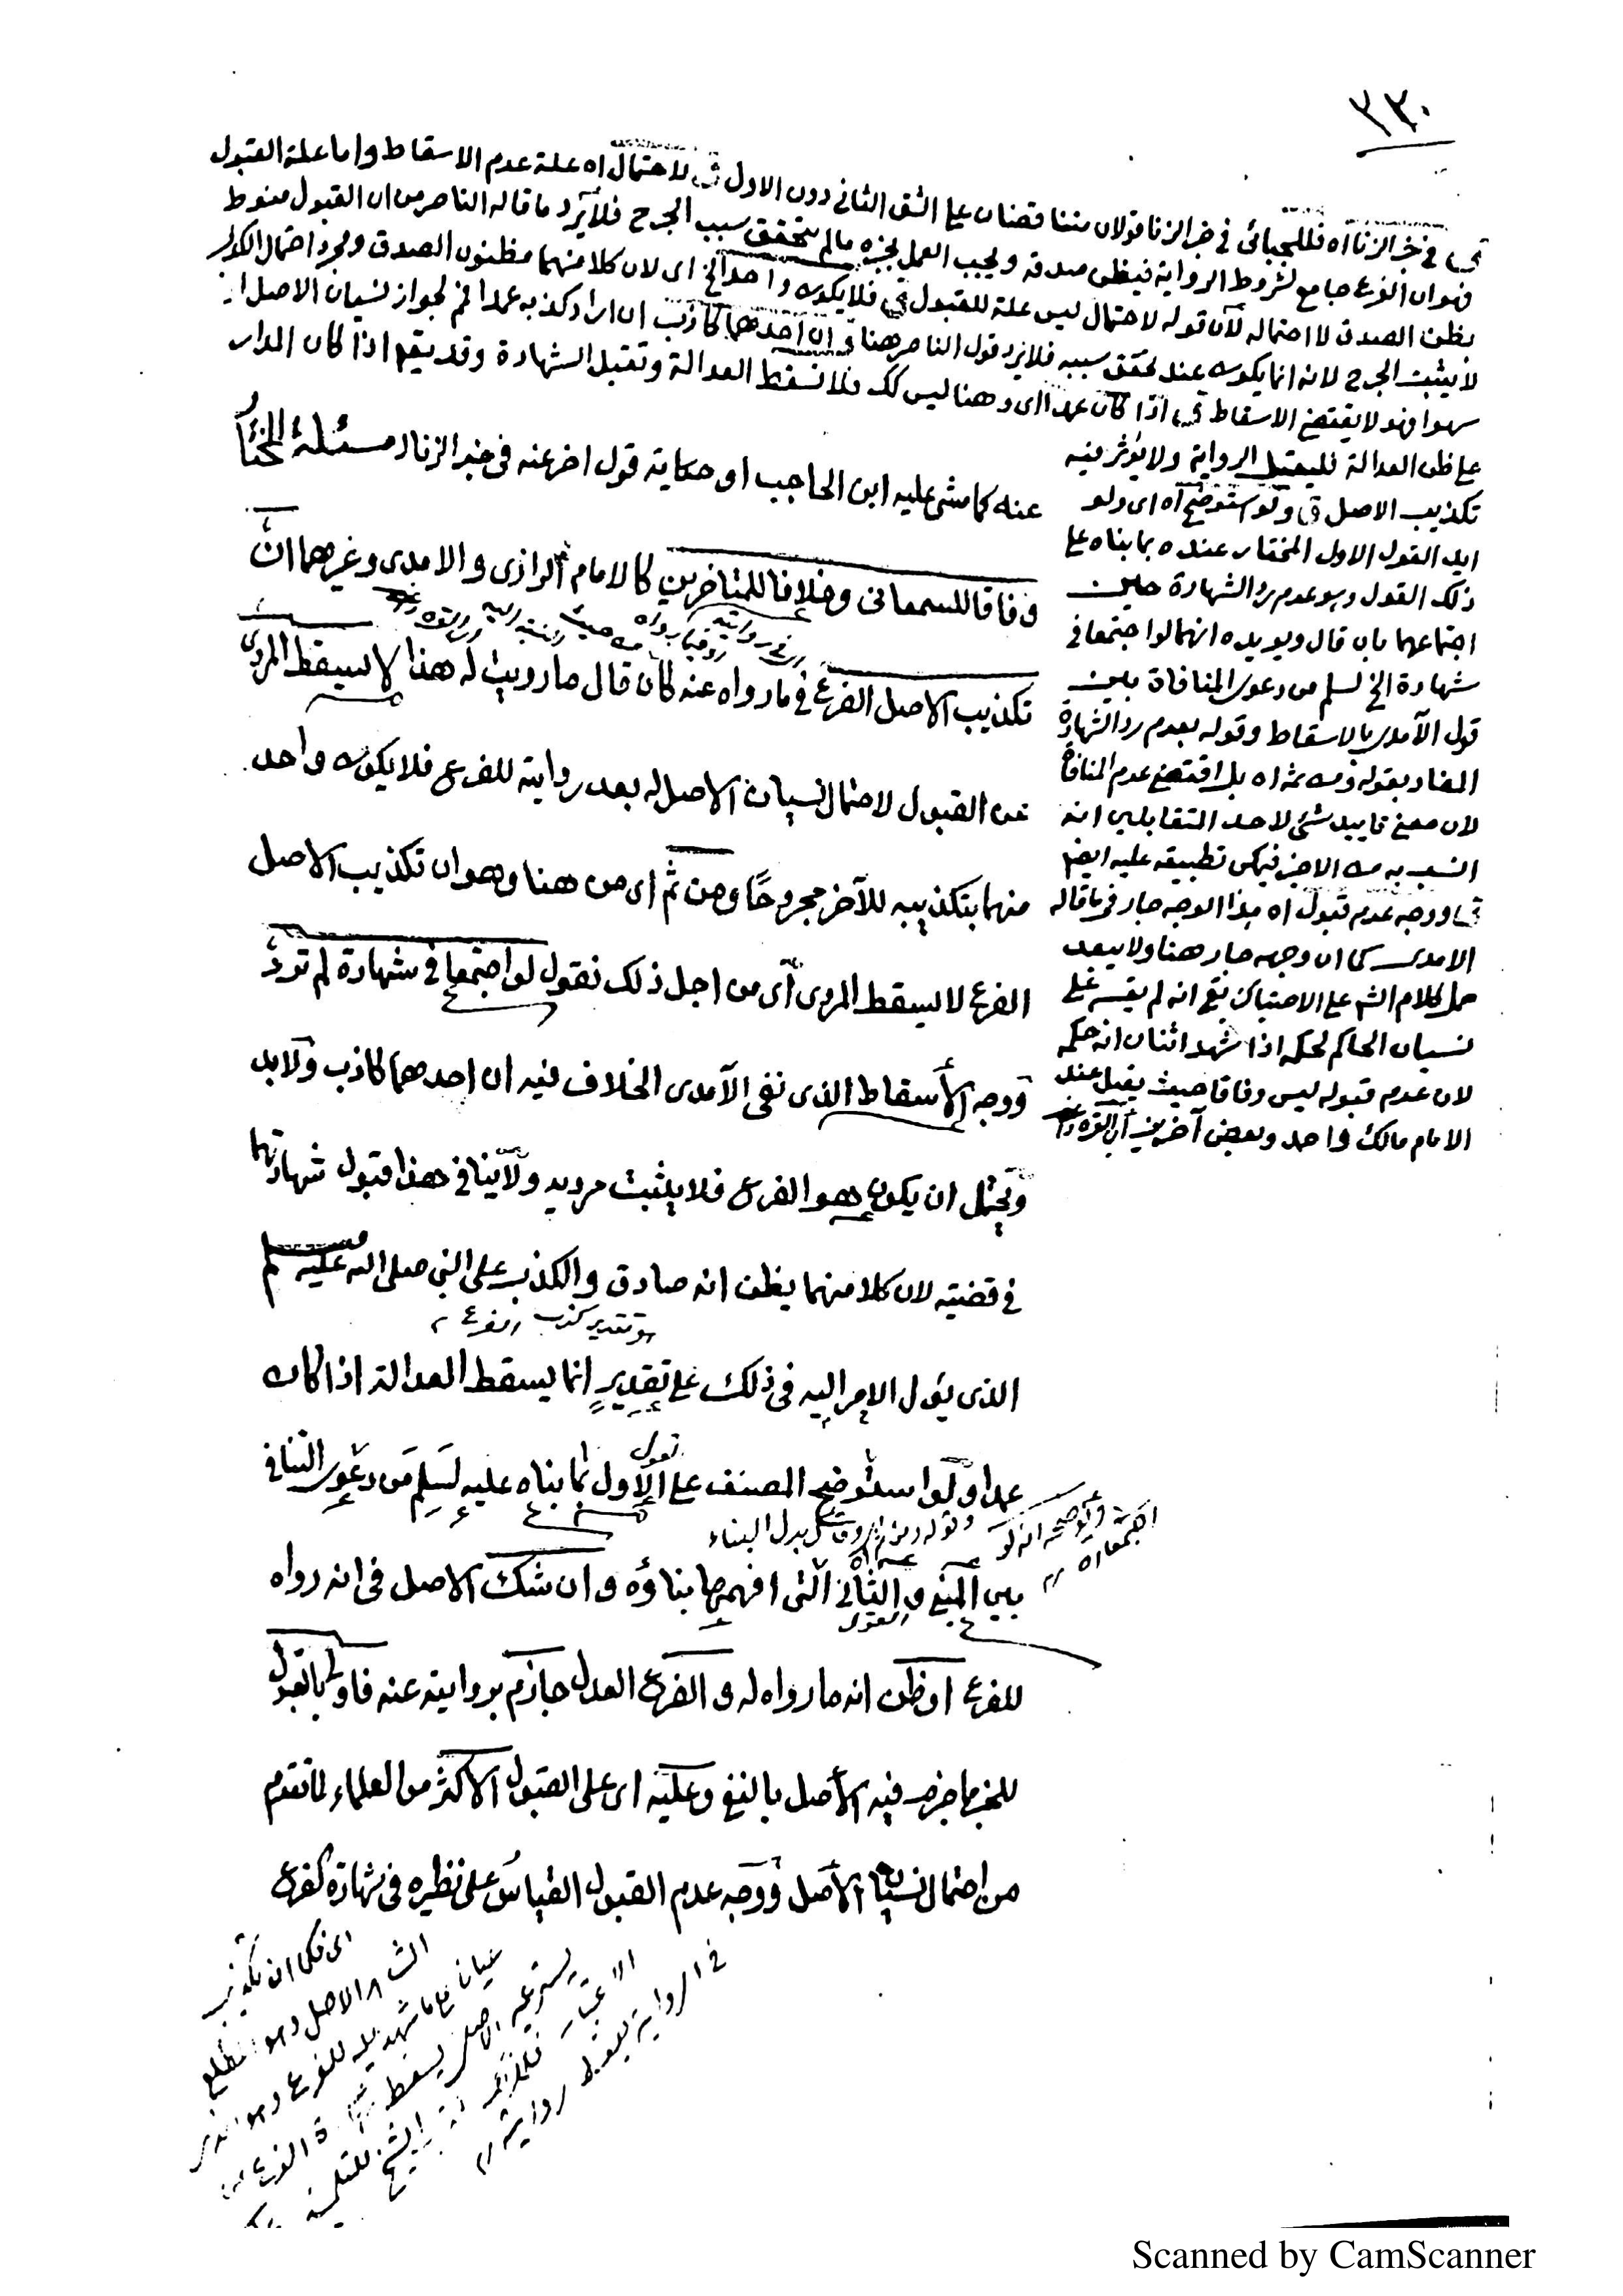 ٣٣٠
في خبر الزنا اه فللجبائي في خبر الزنا قولان متناقضان على الشق الثاني دون الاول لاحتمال اه علة عدم الاسقاط واما علة القبول
فهو ان الفرع جامع لشروط الرواية فيظن صدقه ويجب العمل بخبره مالم يتحقق سبب الجرح فلا يرد ما قاله الناصر من ان القبول منوط
بظن الصدق لا احتماله لان قوله لاحتمال ليس علة للقبول فلا يكون واحد الخ اى لان كلا منهما مظنون الصدق ومجرد احتمال الكذب
لا يثبت الجرح لانه انما يكون عند تحقق سببه فلا يرد قول الناصر هنا ان احدهما كاذب ان اراد كذبه عمدا لجواز نسيان الاصل او
سهوا فهو لا يقتضى الاسقاط اذا كان عمدا اى وهنا ليس كك فلا تسقط العدالة وتقبل الشهادة وقد يقم اذا كان المدار
على ظن العدالة فليقبل الرواية ولا يؤثر فيه
تكذيب الاصل ولو استوضح اه اى ولو
ايد القول الاول المختار عنده بما بناه على
ذلك القول وهو عدم رد الشهادة حين
اجتماعهما بان قال ويؤيده انهما لو اجتمعا في
شهادة الخ لسلم من دعوى المنافاة بين
قول الآمدى بالاسقاط وقوله بعدم رد الشهادة
المفاد بقوله ومن ثم اه بل اقتضى عدم المنافاة
لان معنى تاييد شئ لاحد المتقابلين انه
انسب به من الاخر فيمكن تطبيقه عليه ايضم
ووجه عدم قبول اه هذا الوجه جار فيما قاله
الامدى كما ان وجهه جار هنا ولا يبعد
حمل كلام الشم على الاحتباك بقى انه لم يقسه على
نسيان الحاكم لحكمه اذا شهد اثنان انه حكمه
لان عدم قبوله ليس وفاقا حيث يقبل عند
الامام مالك واحمد وبعض آخرين
عنه كما مشى عليه ابن الحاجب او حكاية قول اخر عنه في خبر الزنا مسئلة المختار
وفاقا للسمعانى وخلافا للمتاخرين كالامام الرازى والامدى وغيرهما ان
تكذيب الاصل الفرع في ما رواه عنه كان قال ما رويت له هذا لا يسقط المروى
عن القبول لاحتمال نسيان الاصل له بعد روايته للفرع فلا يكون واحد
منهما بتكذيبه للآخر مجروحًا ومن ثم اى من هنا وهو ان تكذيب الاصل
الفرع لا يسقط المروى اى من اجل ذلك نقول لو اجتمعا في شهادة لم ترد
ووجه الاسقاط الذى نفى الآمدى الخلاف فيه ان احدهما كاذب ولا بد
ويحتمل ان يكون هو الفرع فلا يثبت مرويه ولا ينافى هذا قبول شهادتهما
في قضيته لان كلا منهما يظن انه صادق والكذب على النبي صلى الله عليه وسلم
هو تقدير كذب الفرع
الذى يؤل الامر اليه فى ذلك على تقدير انما يسقط العدالة اذا كان
عمدا ولو استوضح المصنف على الاول بما بناه عليه لسلم من دعوى التنافى
ويوضحه انه لو اجتمعا اه
وقوله ومن ثم بدل البناء
بين المبنى والثانى التى افهمها بناؤه وان شك الاصل فى انه رواه
للفرع او ظن انه ما رواه له والفرع العدل جازم بروايته عنه فاولى بالقبول
للخبر مما جزم فيه الاصل بالنفى وعليه اى على القبول الاكثر من العلماء لما تقدم
من احتمال نسيان الاصل ووجه عدم القبول القياس على نظيره فى شهادة الفرع
Scanned by CamScanner